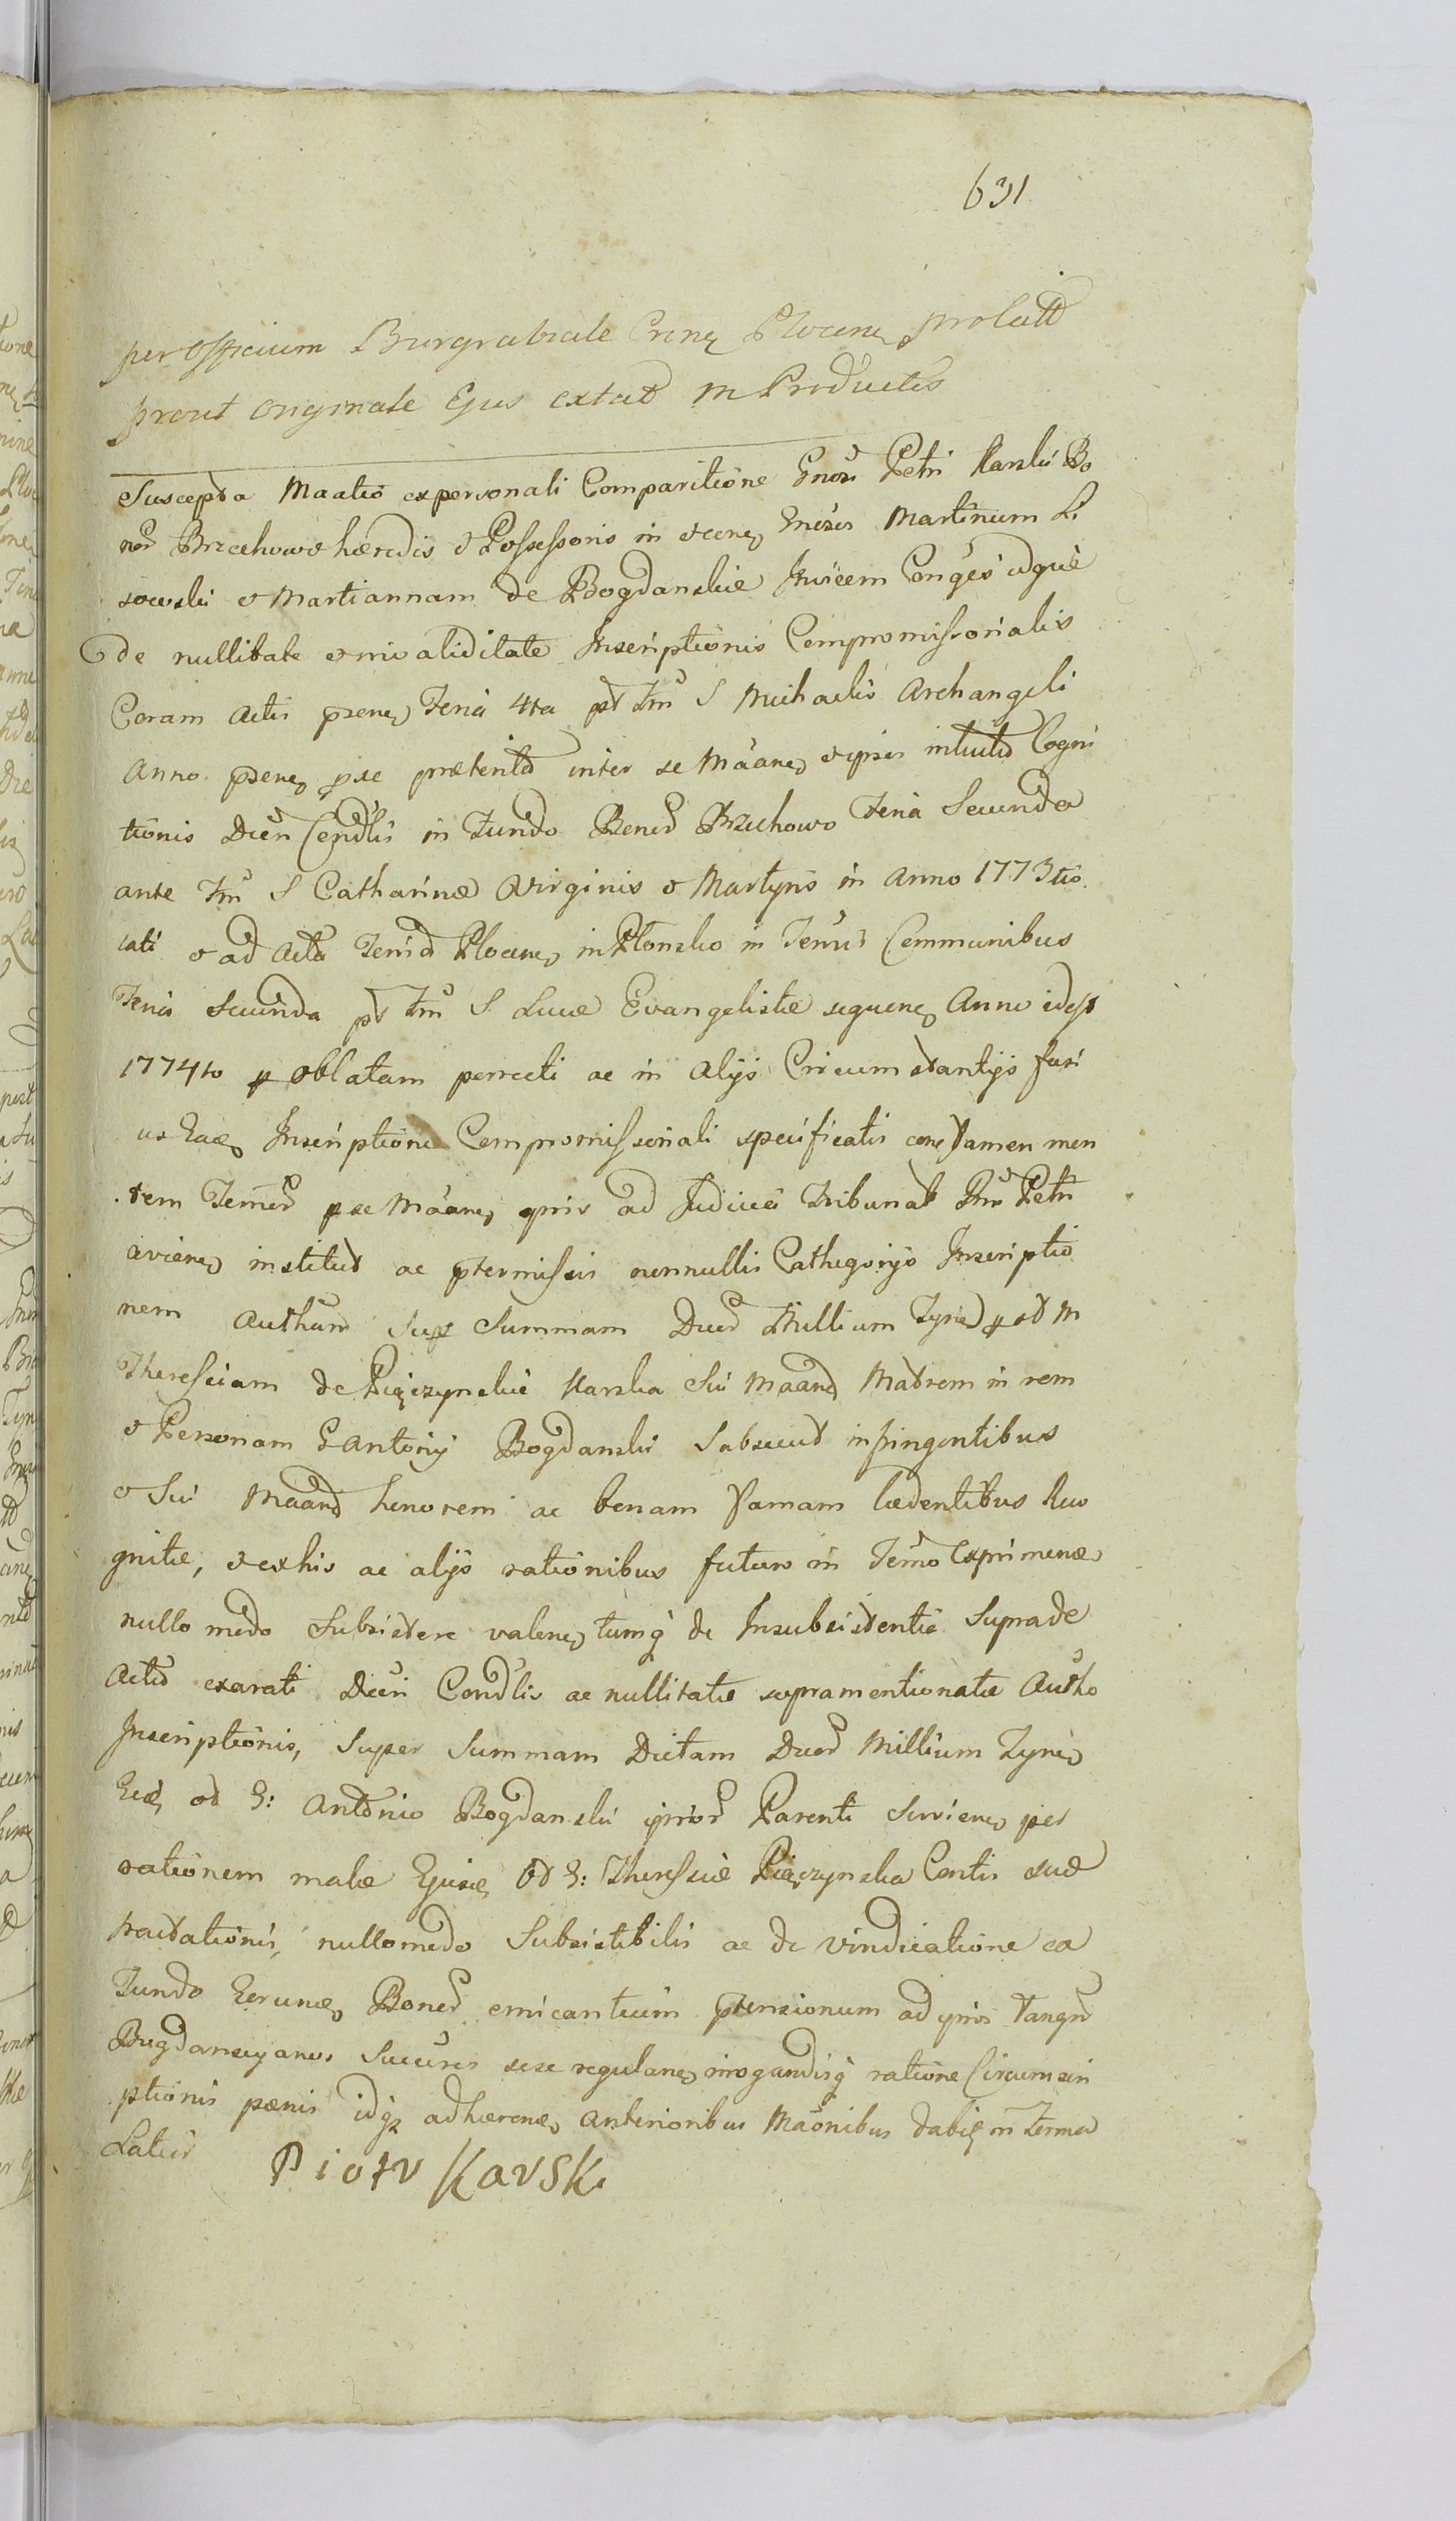 631
per Officium Burgrabiale Crene Plocene prolatt
prout originale Ejus extat in Productis
Suscepta Maatio ex personali Comparitione Gnosi Petri Karski Bo
nor Brzechowo hæredis & Possessoris in & cone Gnosos Martinum Li
sowski & Martiannam de Bogdanskie Invicem Conges idque
de nullitate & invaliditate Inscriptionis Compromissorialis
Coram Actis psene Feria 4ta pt Fm S Michaelis Archangeli
Anno psene p se præterito inter se Maane & ipsos intuitu Cogni
tionis Decri Condlis in Fundo Bonor Brzechowo Feria Secunda
ante Fm S Catharinæ Virginis & Martyris in Anno 1773tio
lati & ad Acta Terrid Plocene in Płonsko in Termis Communibus
Feria Secunda pt Fm S. Lucæ Evangelistæ sequene Anno idest
1774to p oblatam porrecti ac in alijs Circumstantijs fusi
us Inscriptione Compromissoriali specificatis tamen men
tem p se Maane ad Judicia Tribunal Petri
coviene institut ac ptermissis nonnullis Cathegorijs Inscriptio
nem Summam Duor Millium Tyne p ol M
Theressiam de Pięczynskie Karska Sui Maand Matrem in rem
& Personam G Antonij Bogdanski Subsecut infringentibus
& Sui Maand honorem ac bonam Famam lædentibus Reco
gnitæ, & ex his ac alijs rationibus futuro in Termo Exprimene
nullo modo Subsistere valene tumq de Insubsistentia Suprade
Acto exarati Decri Condlis ac nullitate supramentionatæ Autho
Inscriptionis, Super Summam Dictam Duor Millium Tyne
ol G: Antonio Bogdanski Parenti Serviene per
rationem malæ Ejusce Ol G: Theressiæ Pięczynska Contis suæ
tractationis, nullomodo Subsistibilis ac de vindicatione ea
Fundo Bonor emicantium ptensionum ad tanqr
Bogdanscyanos Succores sese regulane irrogandisq ratione Circumscri
ptionis pænis idq adhærene Anterioribus Maonibus in Termo
Latius
Piotr Karski